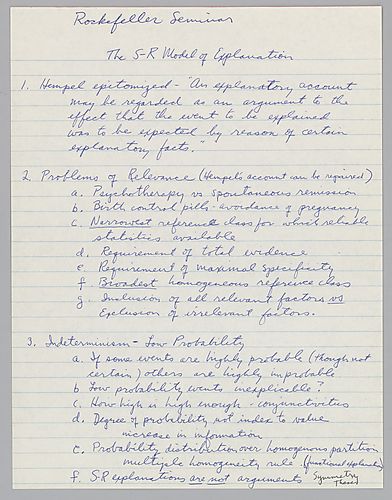 Rockefeller Seminar
The S-R Model of Explanation
1. Hempel epitomized - "An explanatory account
may be regarded as an argument to the
effect that the event to be explained
was to be expected by reason of certain
explanatory facts."
2. Problems of Relevance (Hempel's account can be required)
a. Psychotherapy vs spontaneous remission
b. Birth control pills - avoidance of pregnancy
c. Narrowest reference class for which reliable
statistics available
d. Requirement of total evidence
e. Requirement of maximal specificity
f. Broadest homogeneous reference class
g. Inclusion of all relevant factors vs
Exclusion of irrelevant factors.
3. Indeterminism - Low Probability
a. If some events are highly probable (though not
certain) others are highly improbable
b. Low probability events inexplicable?
c. How high is high enough - conjunctivities
d. Degree of probability not index to value
increase in information
e. Probability distribution over homogenous partition
multiple homogeneity rule (functional explanation)
f. S-R explanations are not arguments Symmetry
Thesis